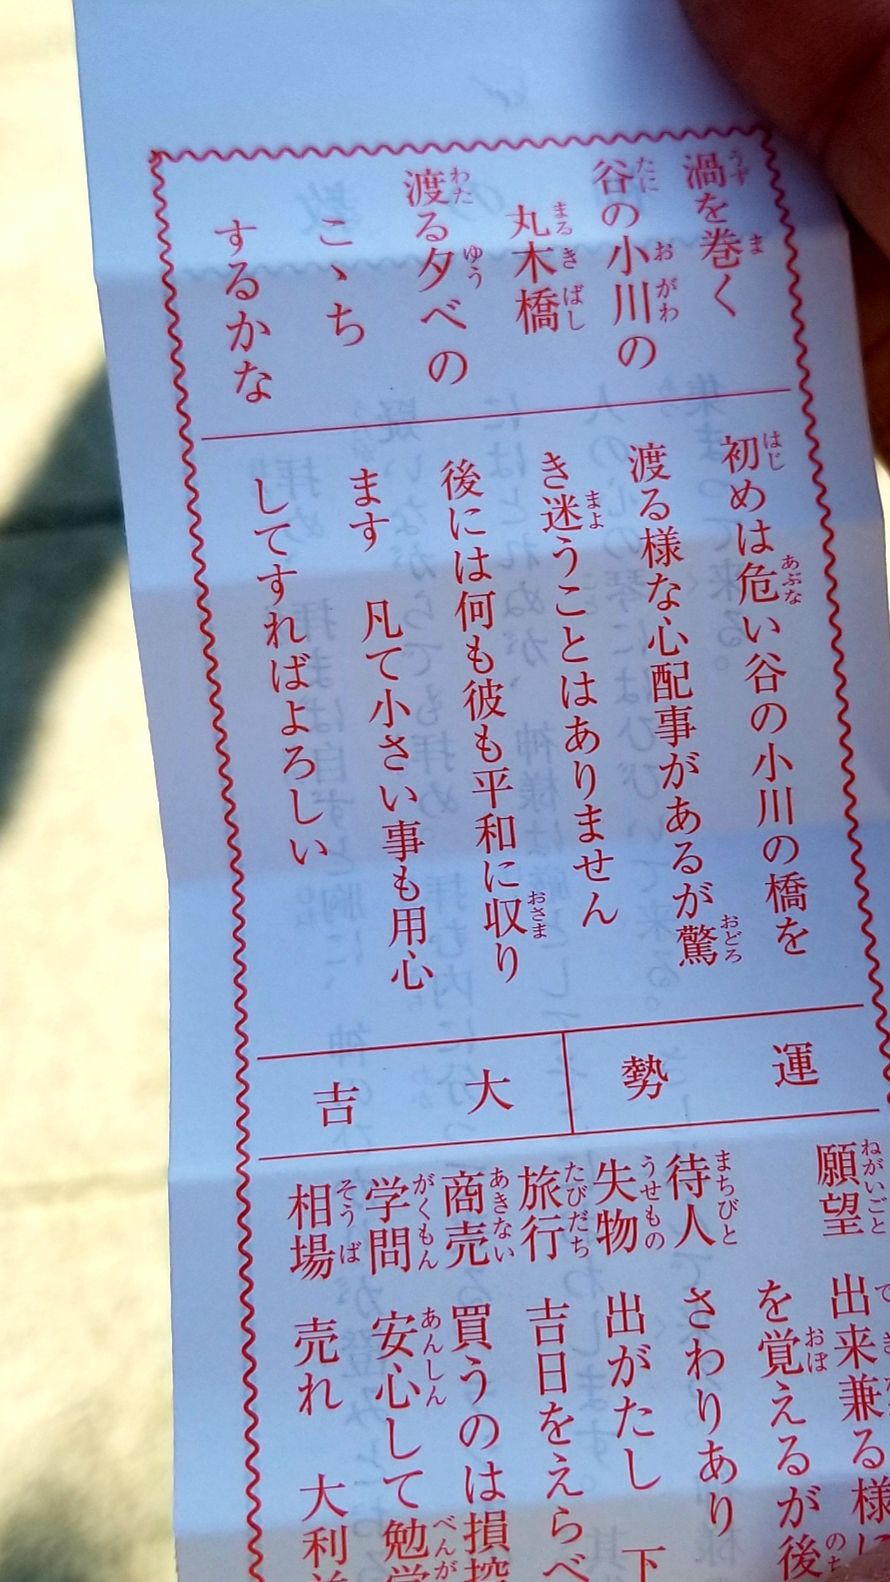 渦を巻く
谷の小川の
丸木橋
渡る夕べの
こゝち
するかな
初めは危い谷の小川の橋を
渡る様な心配事があるが驚
き迷うことはありません
後には何も彼も平和に収り
ます 凡て小さい事も用心
してすればよろしい
運勢 大吉
願望 出来兼る様
を覚えるが後
待人 さわりあり
失物 出がたし 下
旅行 吉日をえらべ
商売 買うのは損
学問 安心して勉
相場 売れ 大利